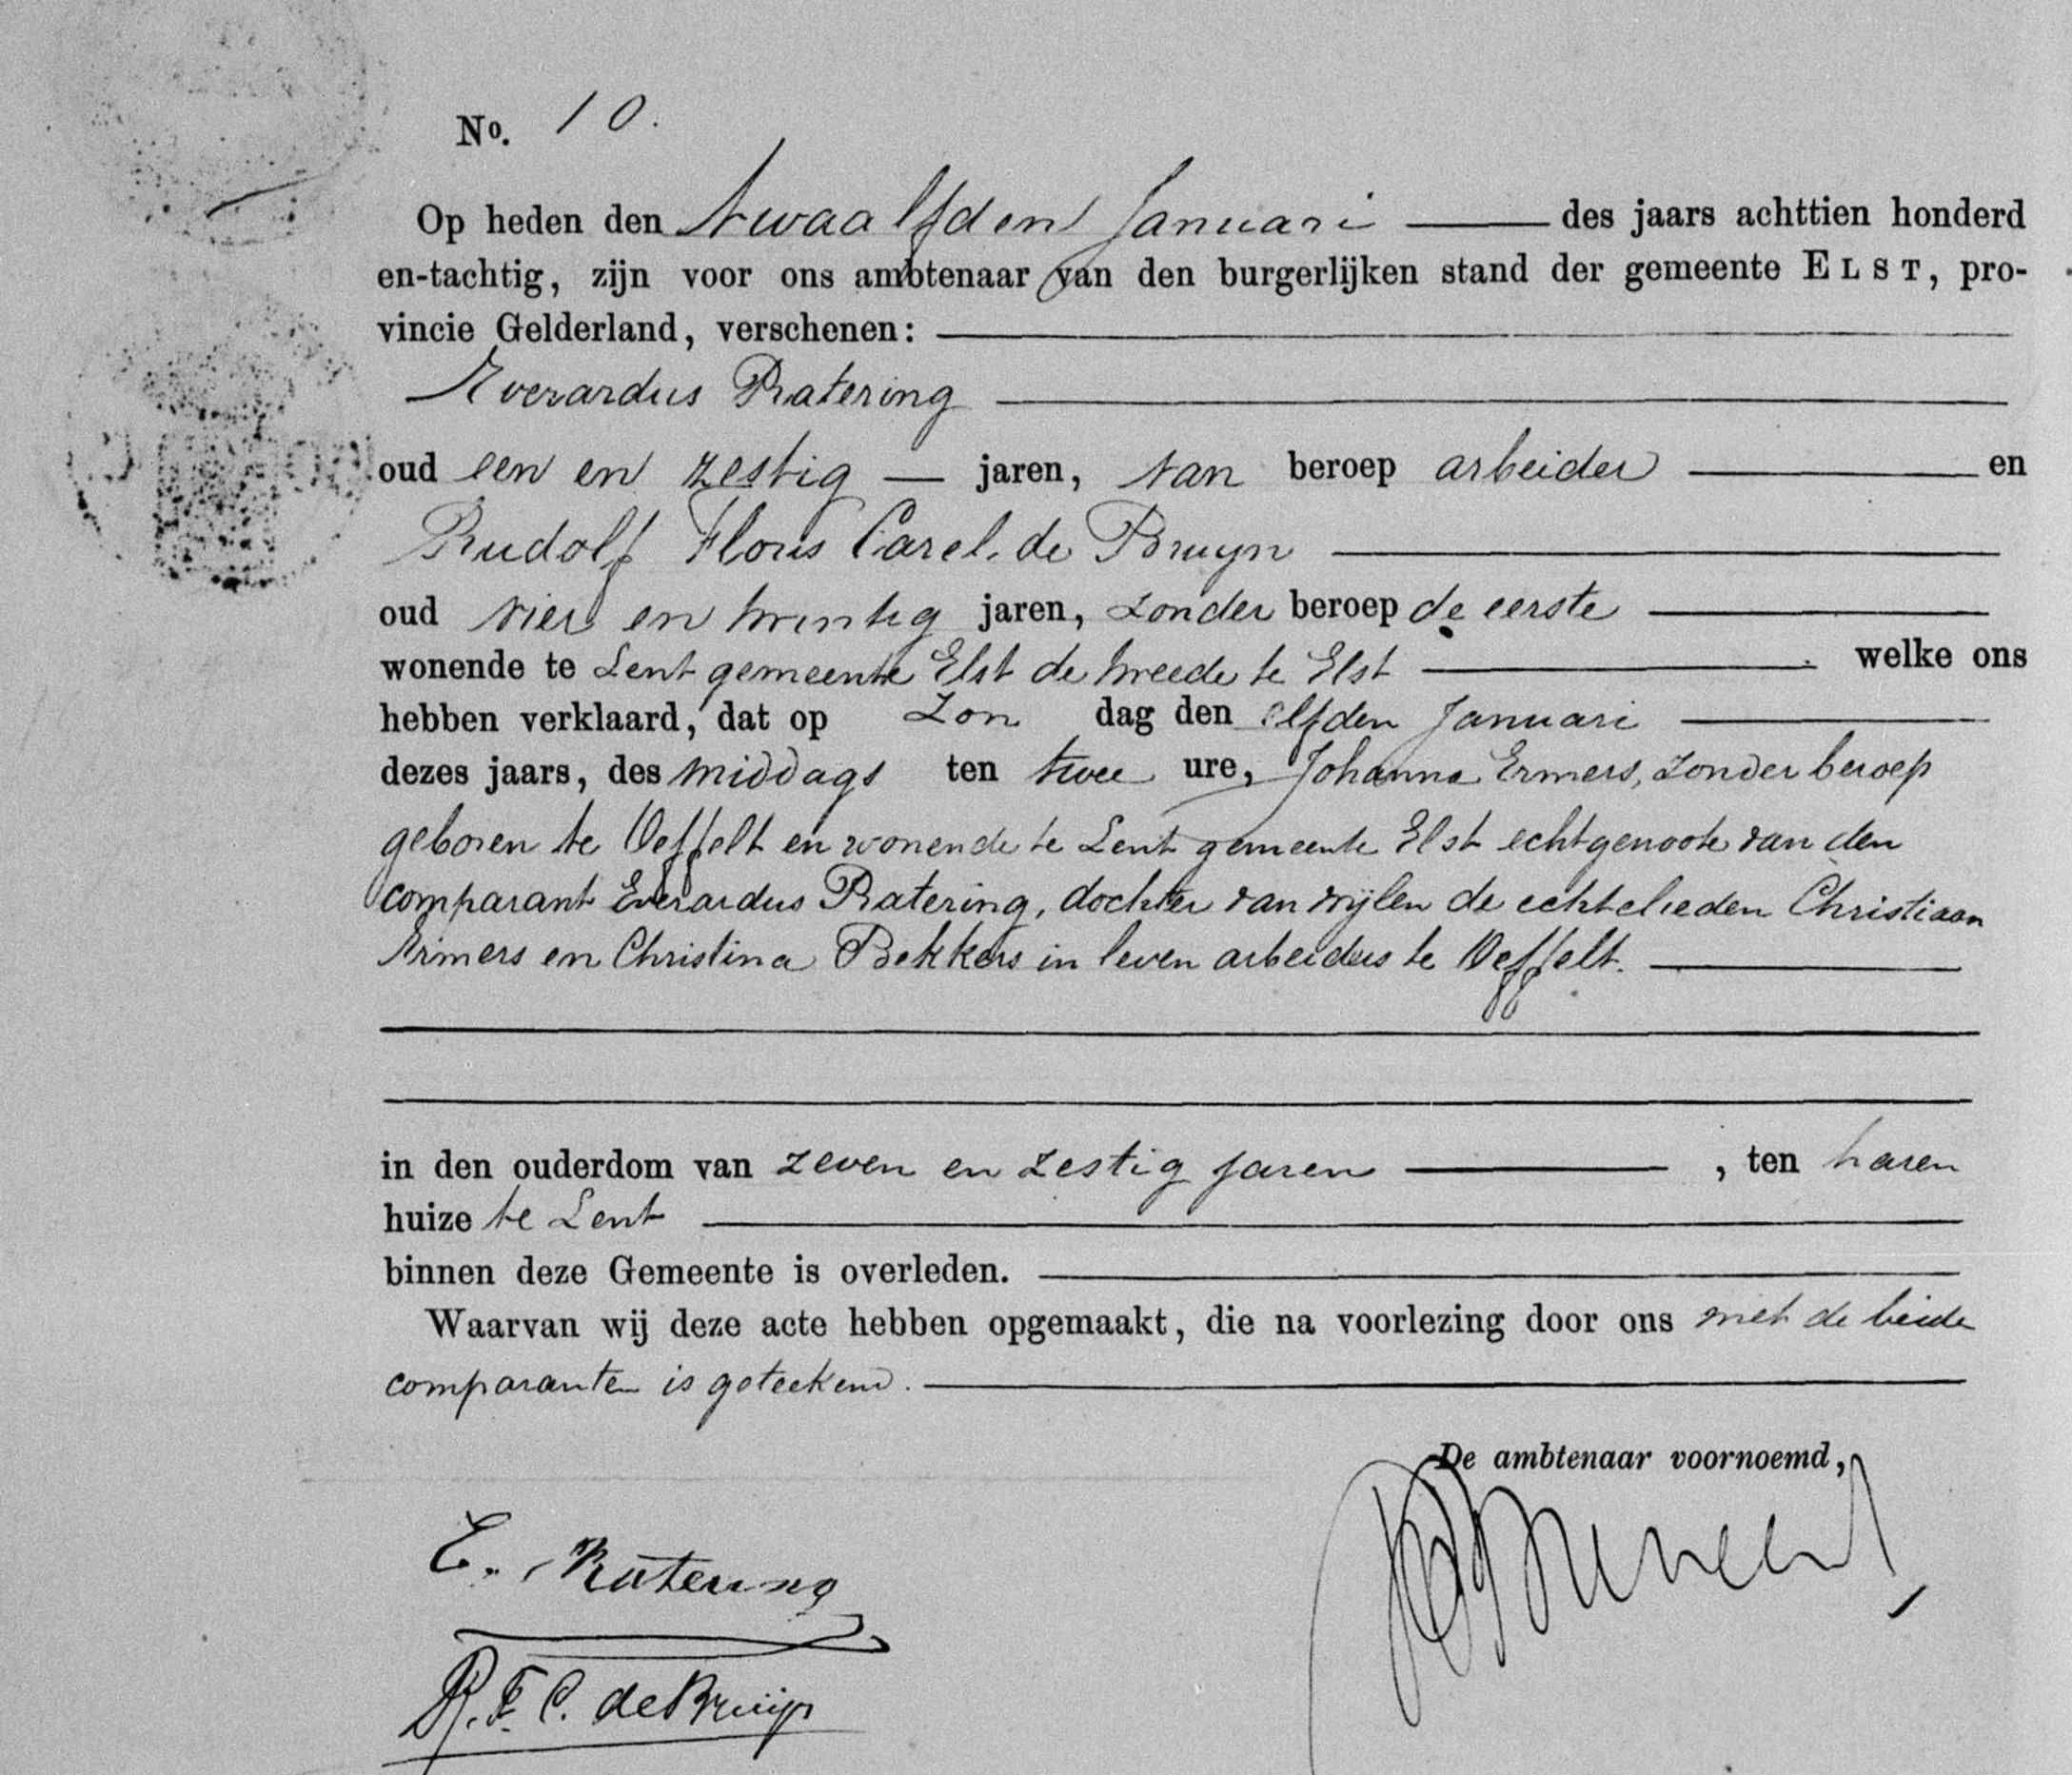 No. 10.
Op heden den twaalfden Januari des jaars achttien honderd
en-tachtig, zijn voor ons ambtenaar van den burgerlijken stand der gemeente ELST, pro-
vincie Gelderland, verschenen:
Everardus Ratering
oud een en zestig jaren, van beroep arbeider en
Rudolf Floris Carel de Bruyn
oud vier en twintig jaren, zonder beroep de eerste
wonende te Lent gemeente Elst de tweede te Elst welke ons
hebben verklaard, dat op Zon dag den elfden Januari
dezes jaars, des middags ten twee ure, Johanna Ermers, zonder beroep
geboren te Oeffelt en wonende te Lent gemeente Elst echtgenoote van den
comparant Everardus Ratering, dochter van wijlen de echtelieden Christiaan
Ermers en Christina Bekkers in leven arbeiders te Oeffelt.
in den ouderdom van zeven en zestig jaren, ten haren
huize te Lent
binnen deze Gemeente is overleden.
Waarvan wij deze acte hebben opgemaakt, die na voorlezing door ons met de beide
comparanten is geteekend.
De ambtenaar voornoemd,
E. Ratering
R. F. C. de Bruijn